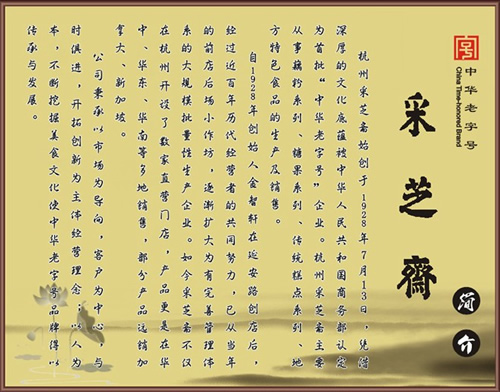 中华老字号
China Time-honored Brand
采芝斋
简介
杭州采芝斋始创于1928年7月13日，凭借
深厚的文化底蕴被中华人民共和国商务部认定
为首批“中华老字号”企业。杭州采芝斋主要
从事藕粉系列、糖果系列、传统糕点系列、地
方特色食品的生产及销售。
自1928年创始人金智轩在延安路创店后，
经过近百年历代经营者的共同努力，已从当年
的前店后场小作坊，逐渐扩大为有完善管理体
系的大规模批量性生产企业。如今采芝斋不仅
在杭州开设了数家直营门店，产品更是在华
中、华东、华南等多地销售，部分产品远销加
拿大、新加坡。
公司秉承以市场为导向，客户为中心，与
时俱进，开拓创新为主体经营理念；以人为
本，不断挖掘美食文化使中华老字号品牌得以
传承与发展。